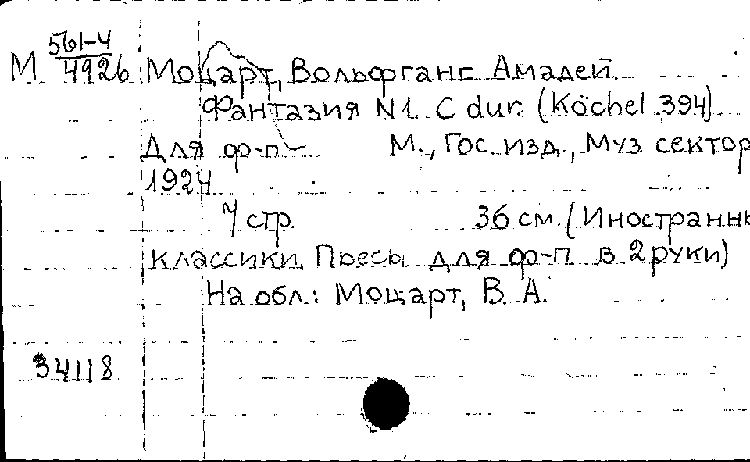 М 561-4
4926 Моцарт, Вольфганг Амадей.
Фантазия N1 C dur. (Köchel 394)
Для ф-п М., Гос. изд., Муз сектор
1924
7 стр. 36 см. (Иностранны
классики. Пьесы для ф-п в 2 руки)
На обл.: Моцарт, В. А.
34118